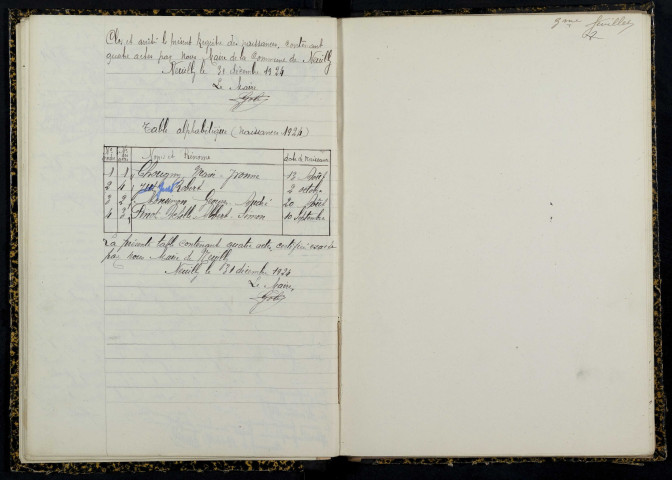 Clos et arrêté le présent Registre des naissances, contenant
quatre actes par Nous Maire de la Commune de Neuilly
Neuilly le 31 décembre 1924
Le Maire
Table alphabétique (Naissances 1924)
Noms et Prénoms date de Naissance
1 1 Marie Yvonne 13 Août
2 4 Robert 2 octobre
3 2 Georges André 20 Août
4 3 Albert Simon 10 Septembre
La présente table contenant quatre actes, certifiée
par nous Maire de Neuilly
Neuilly le 31 décembre 1924
Le Maire,
9ème feuillet